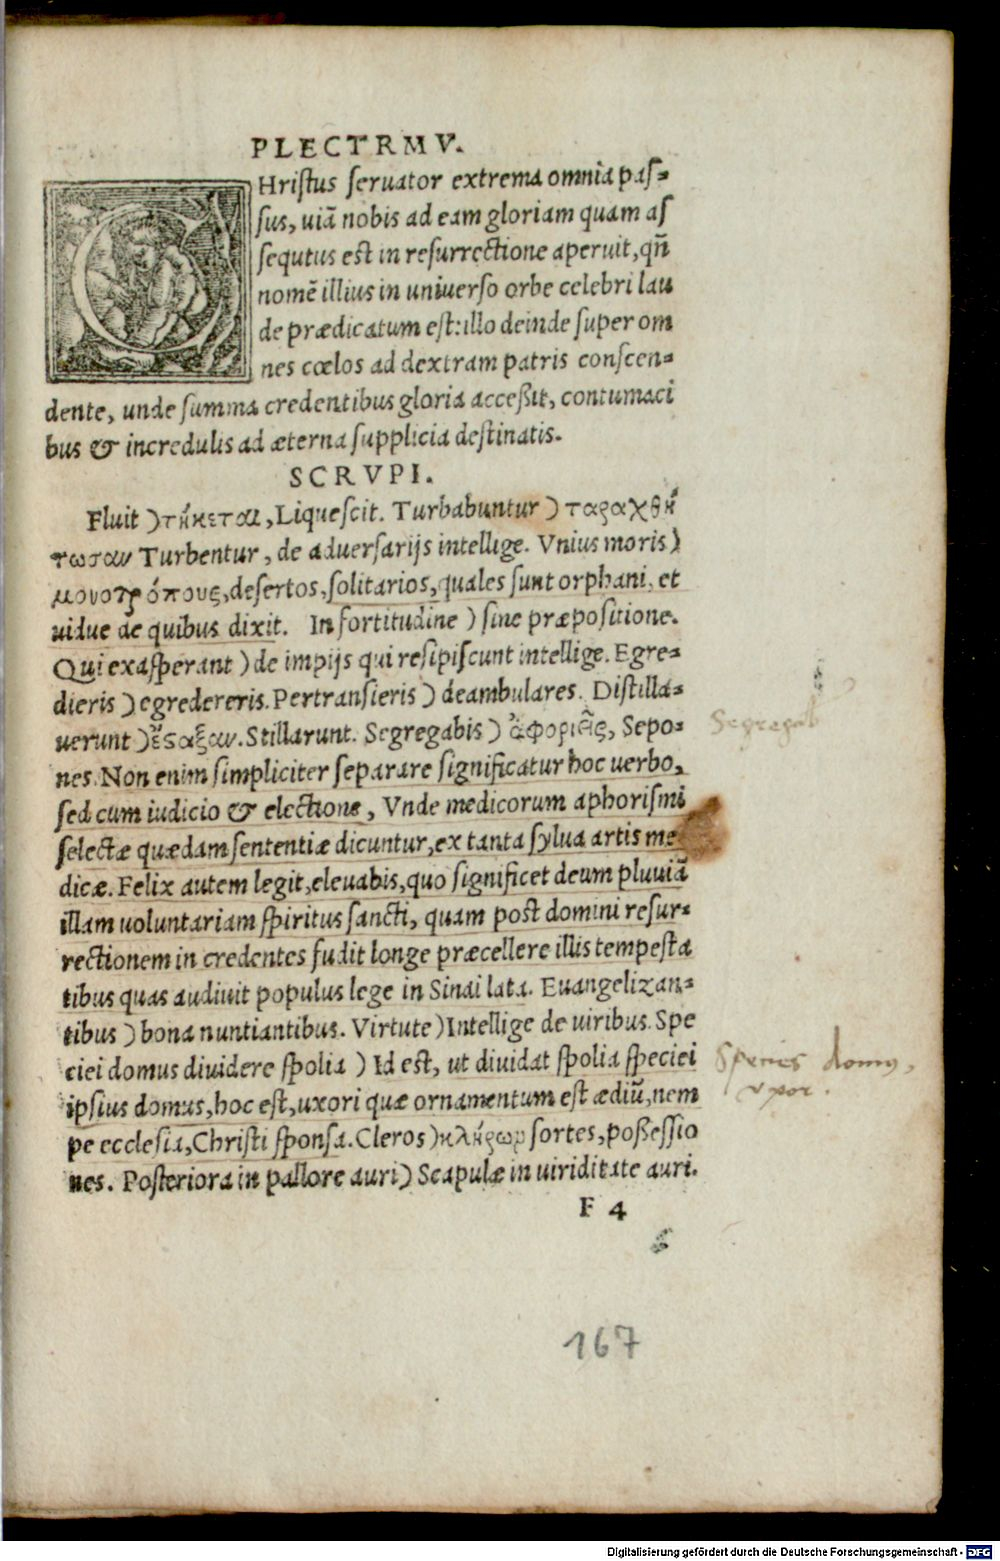 PLECTRMV.
CHristus ſeruator extrema omnia paſ-
ſus, uiã nobis ad eam gloriam quam aſ
ſequtus est in reſurrectione aperuit, qñ
nomẽ illius in uniuerſo orbe celebri lau
de prædicatum est: illo deinde ſuper om
nes cœlos ad dextram patris conſcen-
dente, unde ſumma credentibus gloria acceßit, contumaci
bus & incredulis ad æterna ſupplicia destinatis.
SCRVPI.
Fluit ) τήκεται, Liqueſcit. Turbabuntur ) ταραχθή
τωσαν Turbentur, de aduerſarijs intellige. Vnius moris )
μονοτρόπους, deſertos, ſolitarios, quales ſunt orphani, et
uidue de quibus dixit. In fortitudine ) ſine præpoſitione.
Qui exaſperant ) de impijs qui reſipiſcunt intellige. Egre-
dieris ) egredereris. Pertranſieris ) deambulares. Distilla-
uerunt ) ἔσαξαν. Stillarunt. Segregabis ) ἀφοριεῖς, Sepo-
nes. Non enim ſimpliciter ſeparare ſignificatur hoc uerbo,
ſed cum iudicio & electione, Vnde medicorum aphoriſmi
ſelectæ quædam ſententiæ dicuntur, ex tanta ſylua artis me
dicæ. Felix autem legit, eleuabis, quo ſignificet deum pluuiã
illam uoluntariam ſpiritus ſancti, quam post domini reſur-
rectionem in credentes fudit longe præcellere illis tempesta
tibus quas audiuit populus lege in Sinai lata. Euangelizan-
tibus ) bona nuntiantibus. Virtute ) Intellige de uiribus. Spe
ciei domus diuidere ſpolia ) Id est, ut diuidat ſpolia ſpeciei
ipſius domus, hoc est, uxori quæ ornamentum est ædiũ, nem
pe eccleſia, Christi ſponſa. Cleros ) κλήρων ſortes, poßeſſio
nes. Posteriora in pallore auri ) Scapulæ in uiriditate auri.
F 4
Segregab
Species domus,
vxor.
167
Digitalisierung gefördert durch die Deutsche Forschungsgemeinschaft - DFG